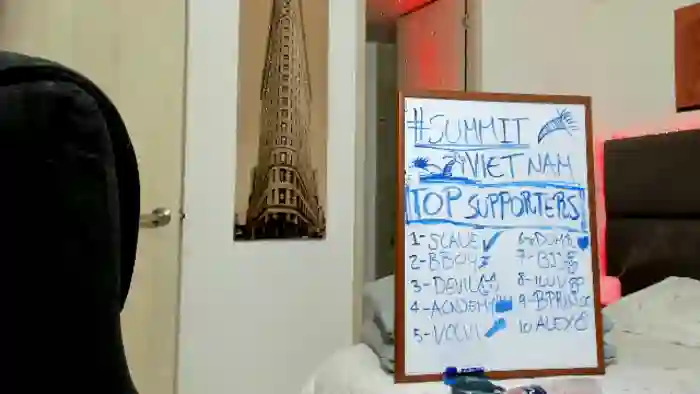 #SUMMIT
VIETNAM
TOP SUPPORTERS
1-SCAUE
2-BBOY
3-DEVIL
4-ACADEMY
5-VOLVI
6-DUMB
7-BI
8-ILUV
9-BPRIN
10 ALEX